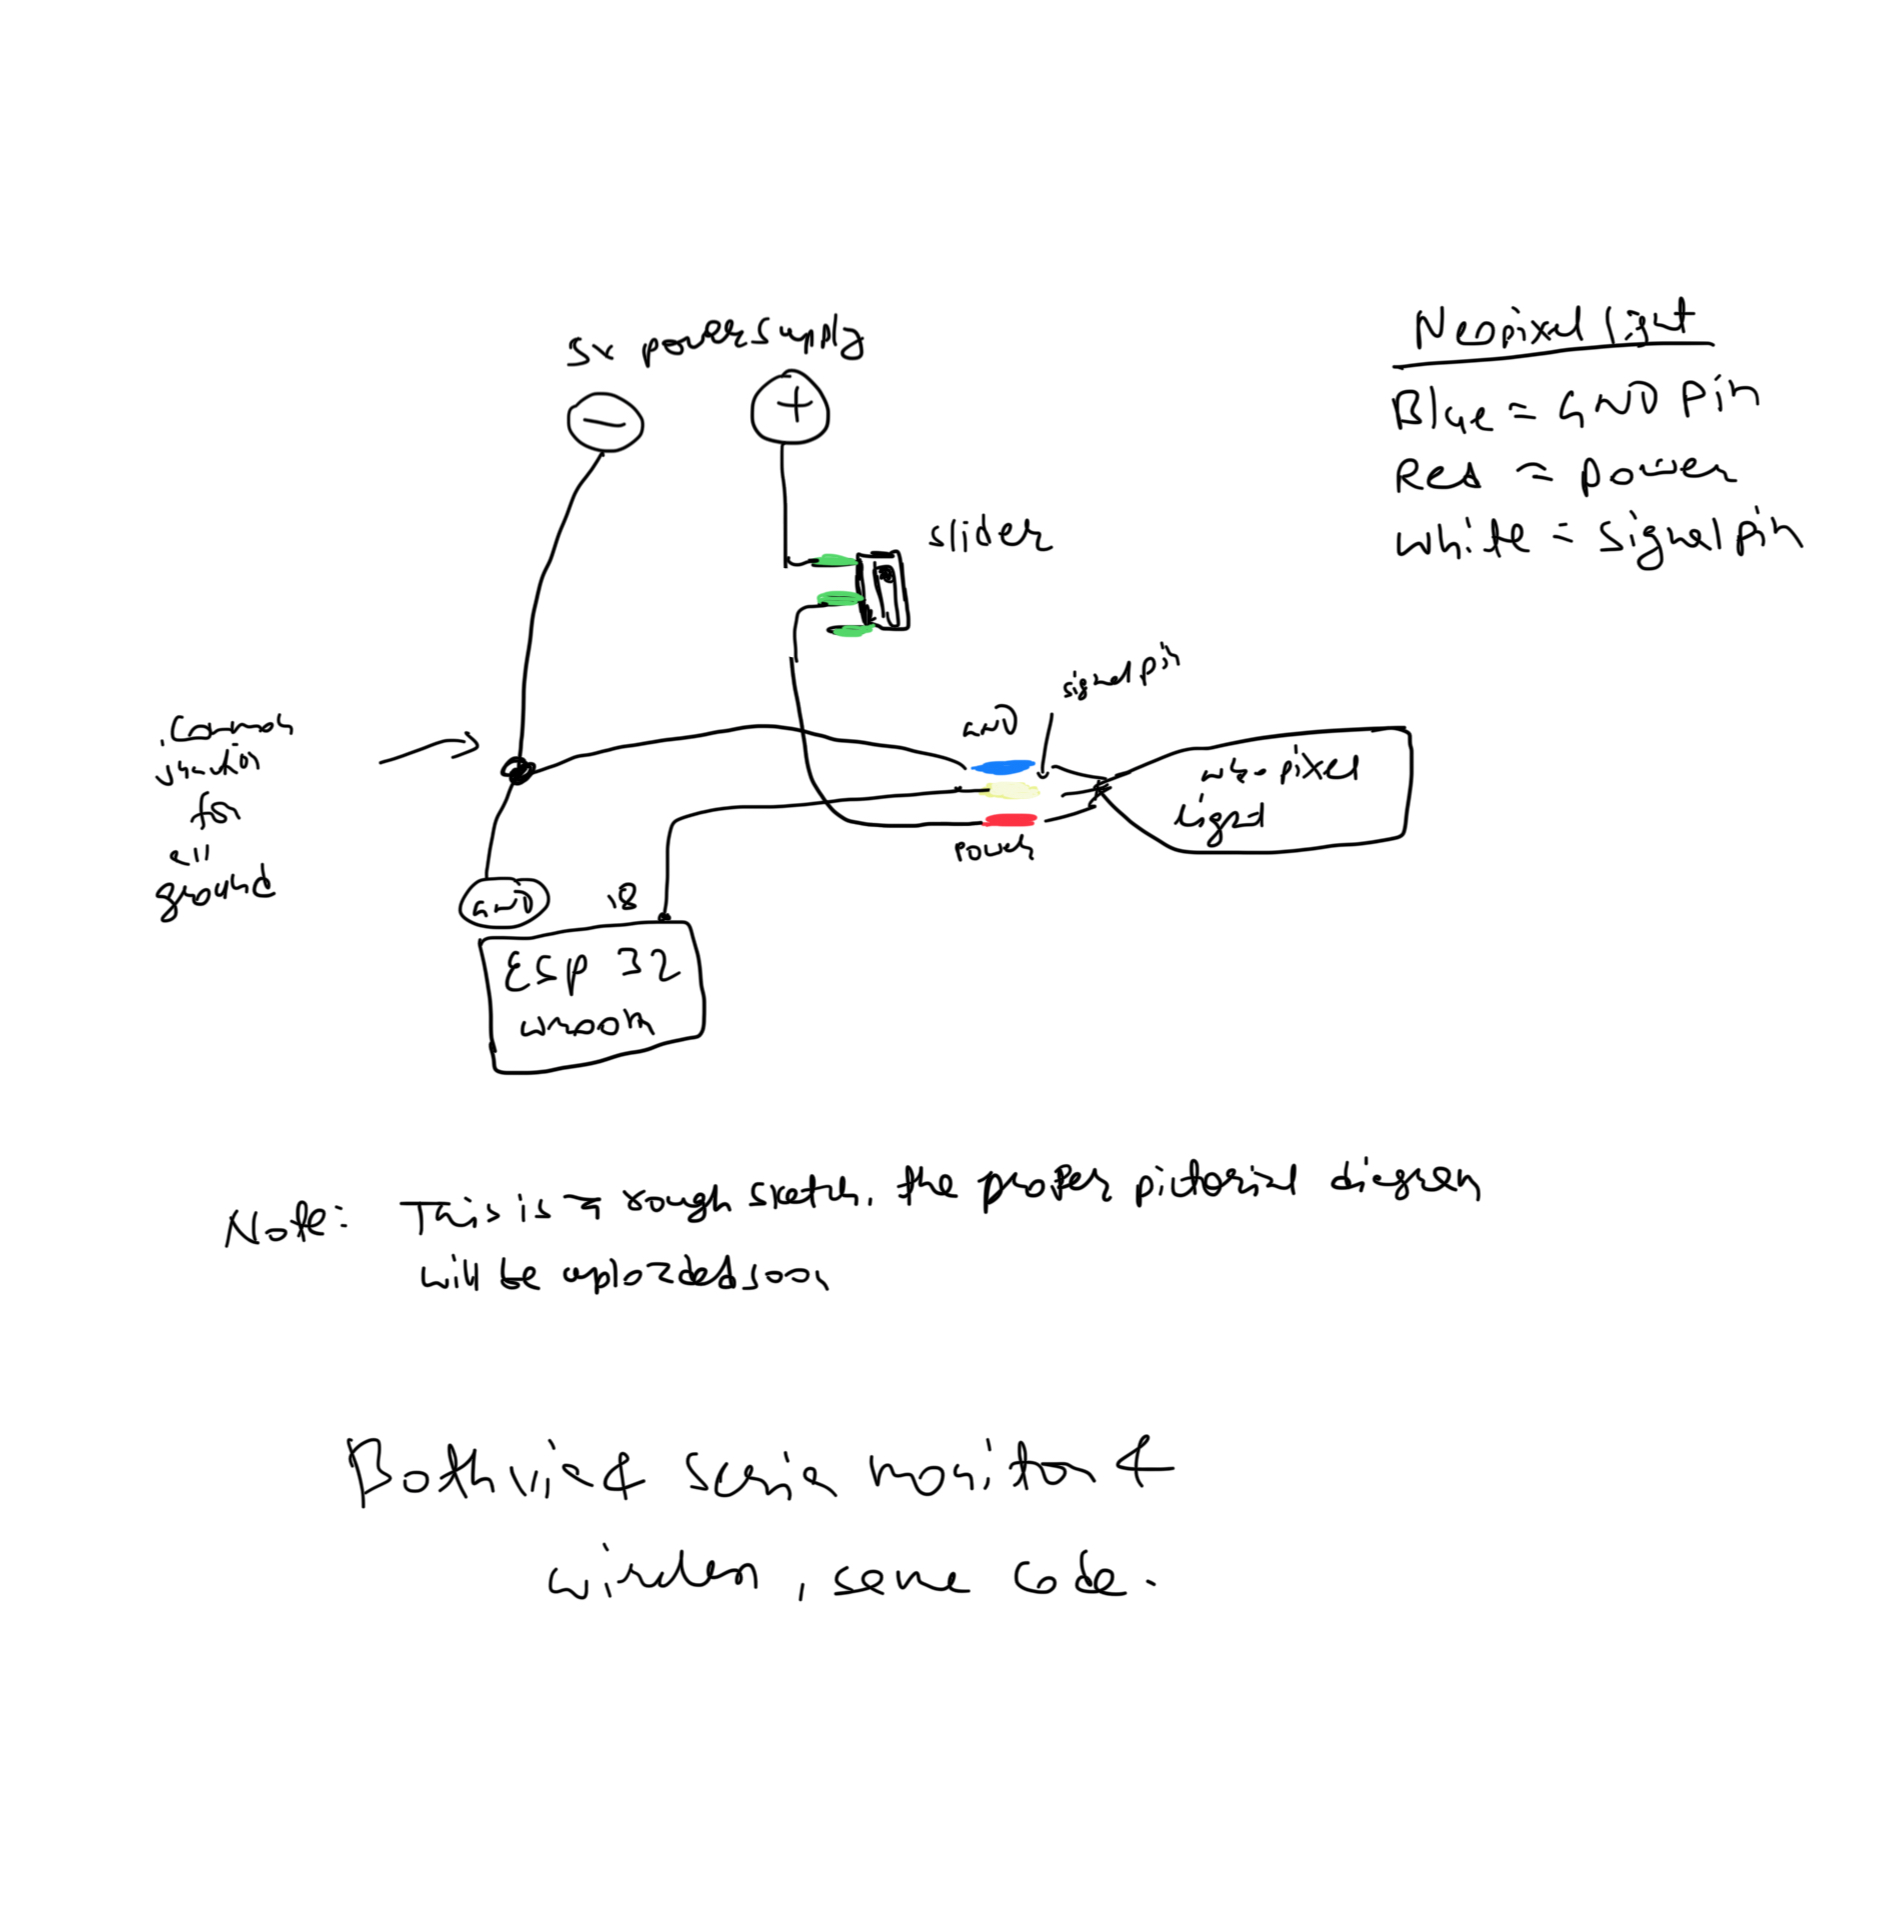 5v power supply
−
+
Neopixel light
Blue = GND Pin
Red = power
White = signal pin
slider
signal pin
Common
junction
for
all
ground
GND
neo-pixel
light
power
GND
18
ESP 32
wroom
Note: This is a rough sketch. the proper pictorial diagram
will be uploaded soon
Both via serial monitor &
wireless, same code.